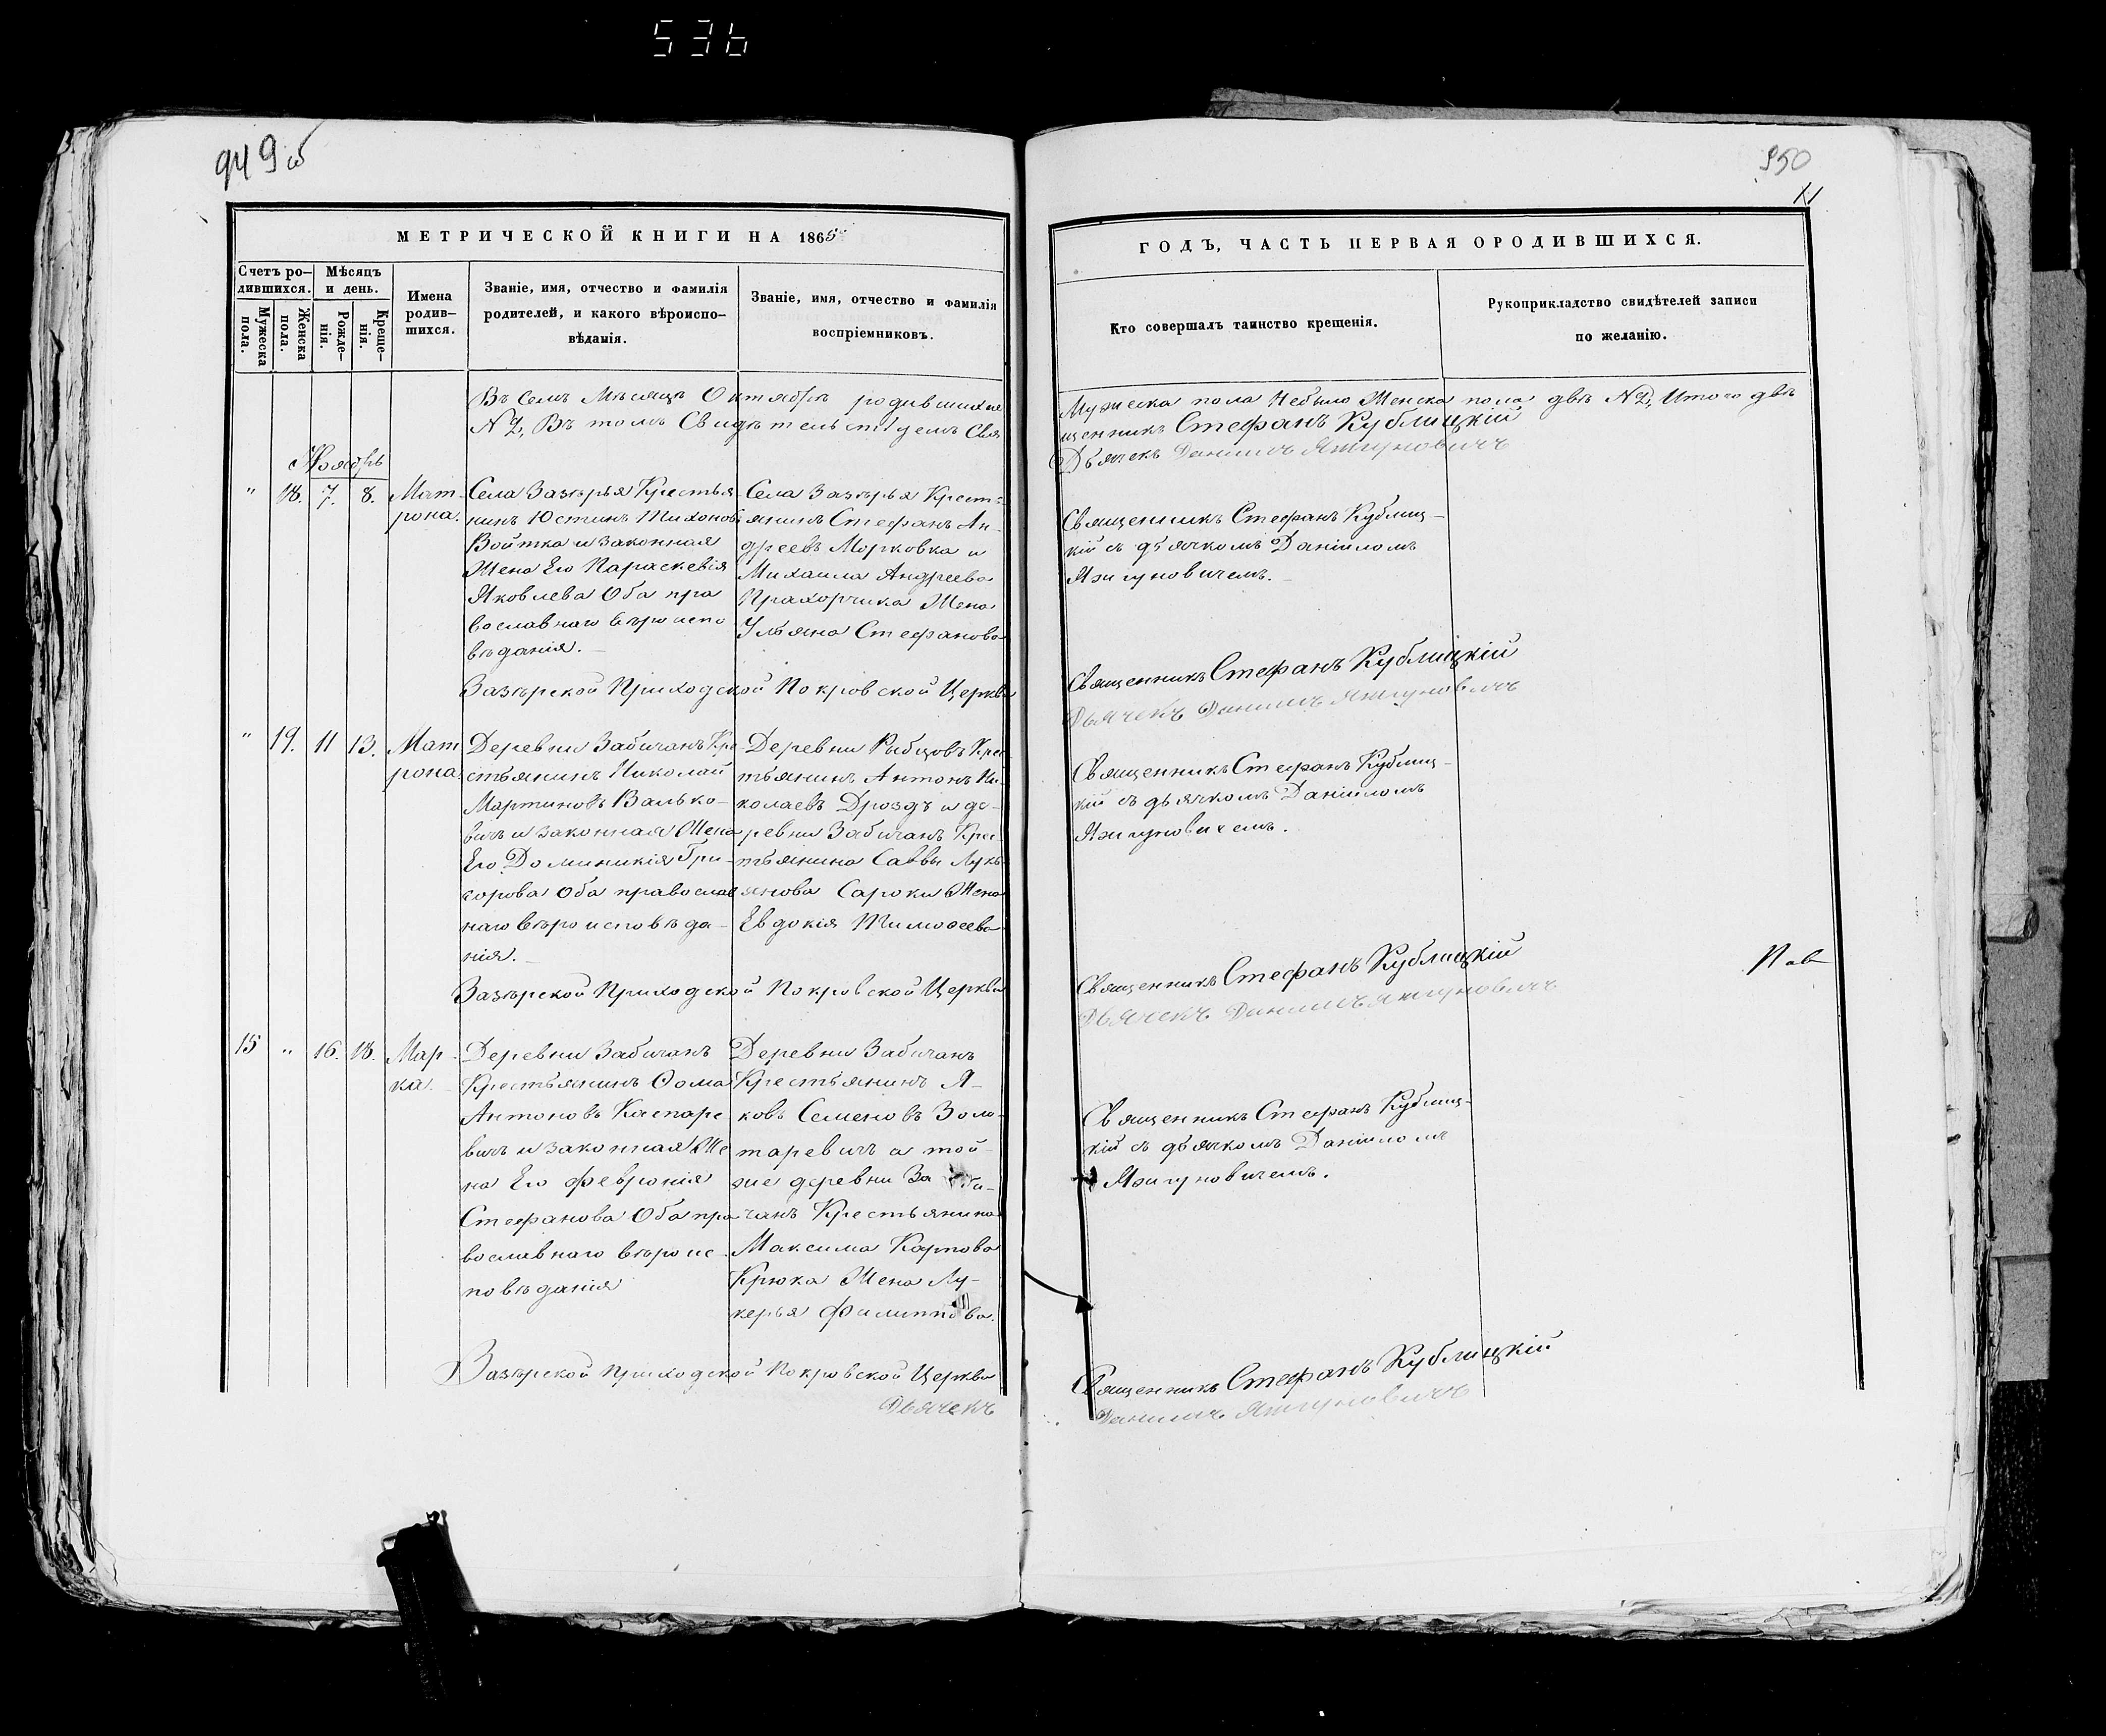 536
949 об
950
11
МЕТРИЧЕСКОЙ КНИГИ НА 1865
ГОДЪ, ЧАСТЬ ПЕРВАЯ О РОДИВШИХСЯ.
Счетъ ро-
дившихся.
Мужеска
пола.
Женска
пола.
Мѣсяцъ
и день.
Рожде-
нія.
Креще-
нія.
Имена
родив-
шихся.
Званіе, имя, отчество и фамилія
родителей, и какого вѣроиспо-
вѣданія.
Званіе, имя, отчество и фамилія
воспріемниковъ.
Кто совершалъ таинство крещенія.
Рукоприкладство свидѣтелей записи
по желанію.
Въ Семъ Мѣсяцѣ Октябрѣ родившихся Мужеска пола Небыло Женска пола двѣ №2, Итого двѣ
№2, Въ томъ Свидѣтельствуемъ Священникъ Стефанъ Кублицкій
Дьячекъ Даниилъ Яжгуновичъ
Ноябрь
" 18. 7. 8.
Мат-
рона.
Села Зазѣрья Крестья-
нинъ Юстинъ Тихоновъ
Войтка и законная
Жена Его Параскевія
Яковлева Оба пра
вославнаго вѣроиспо
вѣданія.
Села Зазѣрья Крест-
янинъ Стефанъ Ан-
дреевъ Морковка и
Михаила Андреева
Прахорчика Жена
Ульяна Стефанова
Священникъ Стефанъ Кублиц-
кій съ дьячкомъ Даніиломъ
Яжгуновичемъ.
Зазѣрской Приходской Покровской Церкви
Священникъ Стефанъ Кублицкій
Дьячекъ Даниилъ Яжгуновичъ
" 19. 11 13.
Мат
рона
Деревни Забичанъ Кре
стьянинъ Николай
Мартиновъ Валько-
вичъ и законная Жена
Его Доминикія Гри-
горова Оба православ
наго вѣроисповѣда-
нія.
Деревни Рыбцовъ Крес
тьянинъ Антонъ Ни-
колаевъ Дроздъ и де-
ревни Забичанъ Крес
тьянина Саввы Лукь
янова Сароки Жена
Евдокія Тимоѳеева
Священникъ Стефанъ Кублиц-
кій съ дьячкомъ Даніиломъ
Яжгуновичемъ.
Зазѣрской Приходской Покровской Церкви
Священникъ Стефанъ Кублицкій
Дьячекъ Даниилъ Яжгуновичъ
15 " 16. 18.
Мар-
ка.
Деревни Забичанъ
Крестьянинъ Ѳома
Антоновъ Каспаре
вичъ и законная Же
на Его Февронія
Стефанова Оба пра
вославнаго вѣроис-
повѣданія
Деревни Забичанъ
Крестьянинъ Я-
ковъ Семеновъ Золо-
таревичъ а той
же деревни Заби-
чанъ Крестьянина
Максима Карпова
Крюка Жена Лу-
керья Филиппова.
Священникъ Стефанъ Кублиц-
кій съ дьячкомъ Даніиломъ
Яжгуновичемъ.
Зазѣрской Приходской Покровской Церкви
Священникъ Стефанъ Кублицкій
Дьячекъ
Даниилъ Яжгуновичъ